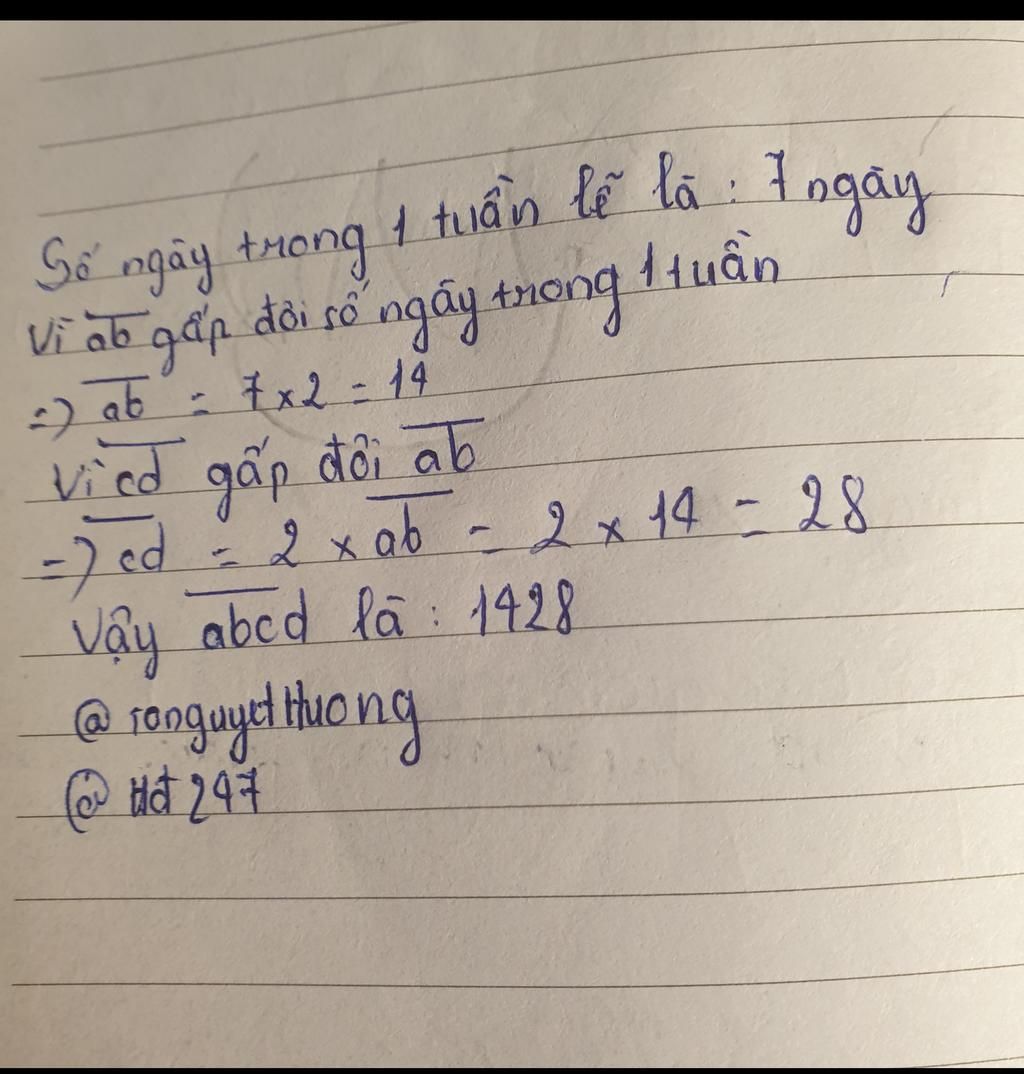 Số ngày trong 1 tuần lễ là : 7 ngày
Vì ab gấp đôi số ngày trong 1 tuần
=> ab = 7 x 2 = 14
Vì cd gấp đôi ab
=> cd = 2 x ab = 2 x 14 = 28
Vậy abcd là : 1428
@ ronguyet Huong
@ Hđ 247